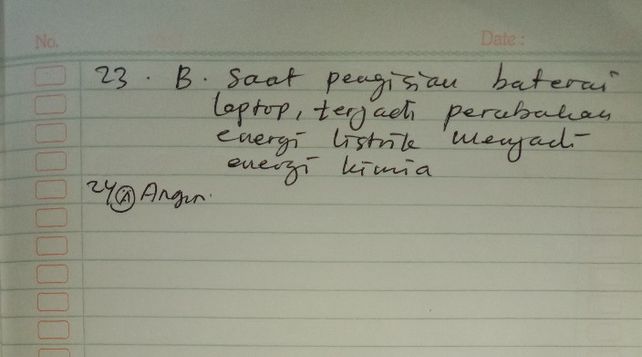 No.
Date:
23. B. Saat pengisian baterai
laptop, terjadi perubahan
energi listrik menjadi
energi kimia
24 (A) Angin.